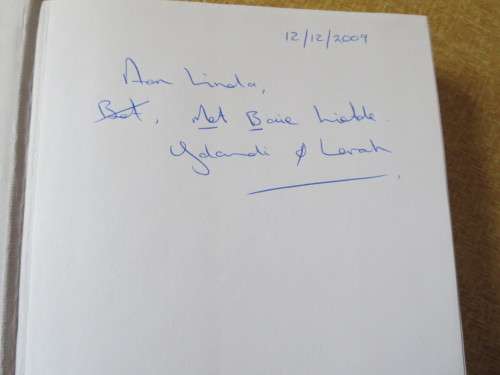 12/12/2009
Aan Linda,
Bet, Met Baie Liefde.
Yolandi & Lerah